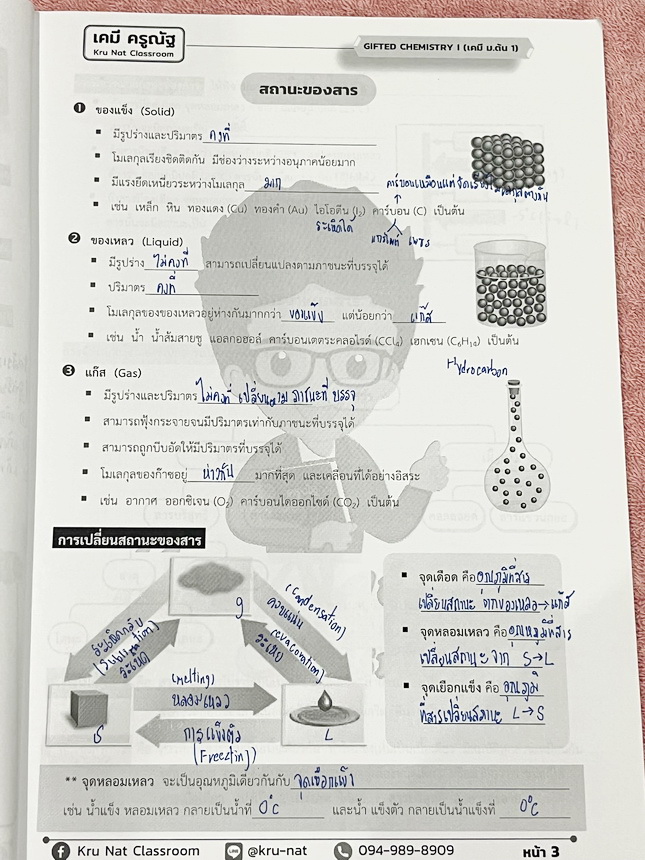 เคมี ครูณัฐ
Kru Nat Classroom
GIFTED CHEMISTRY I (เคมี ม.ต้น 1)
สถานะของสาร
1 ของแข็ง (Solid)
▪ มีรูปร่างและปริมาตร คงที่
▪ โมเลกุลเรียงชิดติดกัน มีช่องว่างระหว่างอนุภาคน้อยมาก
▪ มีแรงยึดเหนี่ยวระหว่างโมเลกุล มาก
คาร์บอนเหมือนแต่จัดเรียง
▪ เช่น เหล็ก หิน ทองแดง (Cu) ทองคำ (Au) ไอโอดีน (I₂) คาร์บอน (C) เป็นต้น
ระเหิดได้
แกรไฟต์ เพชร
2 ของเหลว (Liquid)
▪ มีรูปร่าง ไม่คงที่ สามารถเปลี่ยนแปลงตามภาชนะที่บรรจุได้
▪ ปริมาตร คงที่
▪ โมเลกุลของของเหลวอยู่ห่างกันมากกว่า ของแข็ง แต่น้อยกว่า แก๊ส
▪ เช่น น้ำ น้ำส้มสายชู แอลกอฮอล์ คาร์บอนเตตระคลอไรด์ (CCl₄) เฮกเซน (C₆H₁₄) เป็นต้น
Hydrocarbon
3 แก๊ส (Gas)
▪ มีรูปร่างและปริมาตร ไม่คงที่ เปลี่ยนตาม ภาชนะที่ บรรจุ
▪ สามารถฟุ้งกระจายจนมีปริมาตรเท่ากับภาชนะที่บรรจุได้
▪ สามารถถูกบีบอัดให้มีปริมาตรที่บรรจุได้
▪ โมเลกุลของก๊าซอยู่ ห่างกัน มากที่สุด และเคลื่อนที่ได้อย่างอิสระ
▪ เช่น อากาศ ออกซิเจน (O₂) คาร์บอนไดออกไซด์ (CO₂) เป็นต้น
การเปลี่ยนสถานะของสาร
g
ระเหิดกลับ
(Sublimation)
ระเหิด
(Condensation)
ควบแน่น
ระเหย
(evaporation)
(melting)
หลอมเหลว
การแข็งตัว
(Freezing)
S
L
▪ จุดเดือด คือ อุณภูมิที่สาร
เปลี่ยนสถานะ จากของเหลว→แก๊ส
▪ จุดหลอมเหลว คือ อุณหภูมิที่สาร
เปลี่ยนสถานะ จาก S→L
▪ จุดเยือกแข็ง คือ อุณภูมิ
ที่สารเปลี่ยนสถานะ L→S
** จุดหลอมเหลว จะเป็นอุณหภูมิเดียวกันกับ จุดเยือกแข็ง
เช่น น้ำแข็ง หลอมเหลว กลายเป็นน้ำที่ 0°C และน้ำ แข็งตัว กลายเป็นน้ำแข็งที่ 0°C
Kru Nat Classroom @kru-nat 094-989-8909 หน้า 3